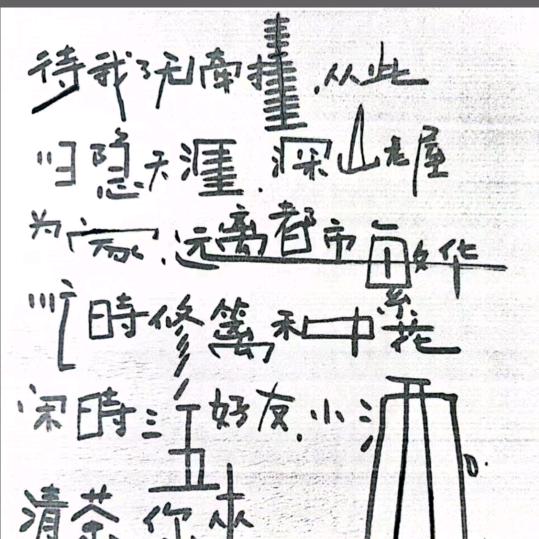 待我了无牵挂,从此
归隐天涯.深山老屋
为家.远离都市繁华
忙時修篱种花
闲時三五好友.小酒
清茶你來